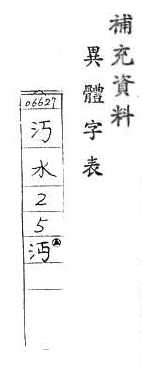 補充資料
異體字表
06627
汅
水
2
5
沔